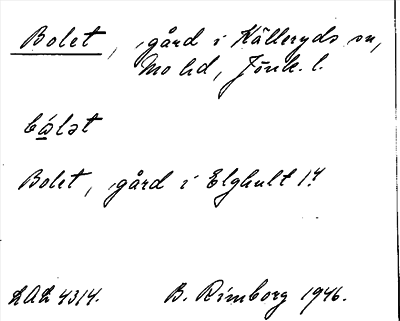 Bolet, gård i Källeryds sn,
Mo hd, Jönk. l.
bólət
Bolet, gård i Elghult 1/4
LAL 4314. B. Rimborg 1946.